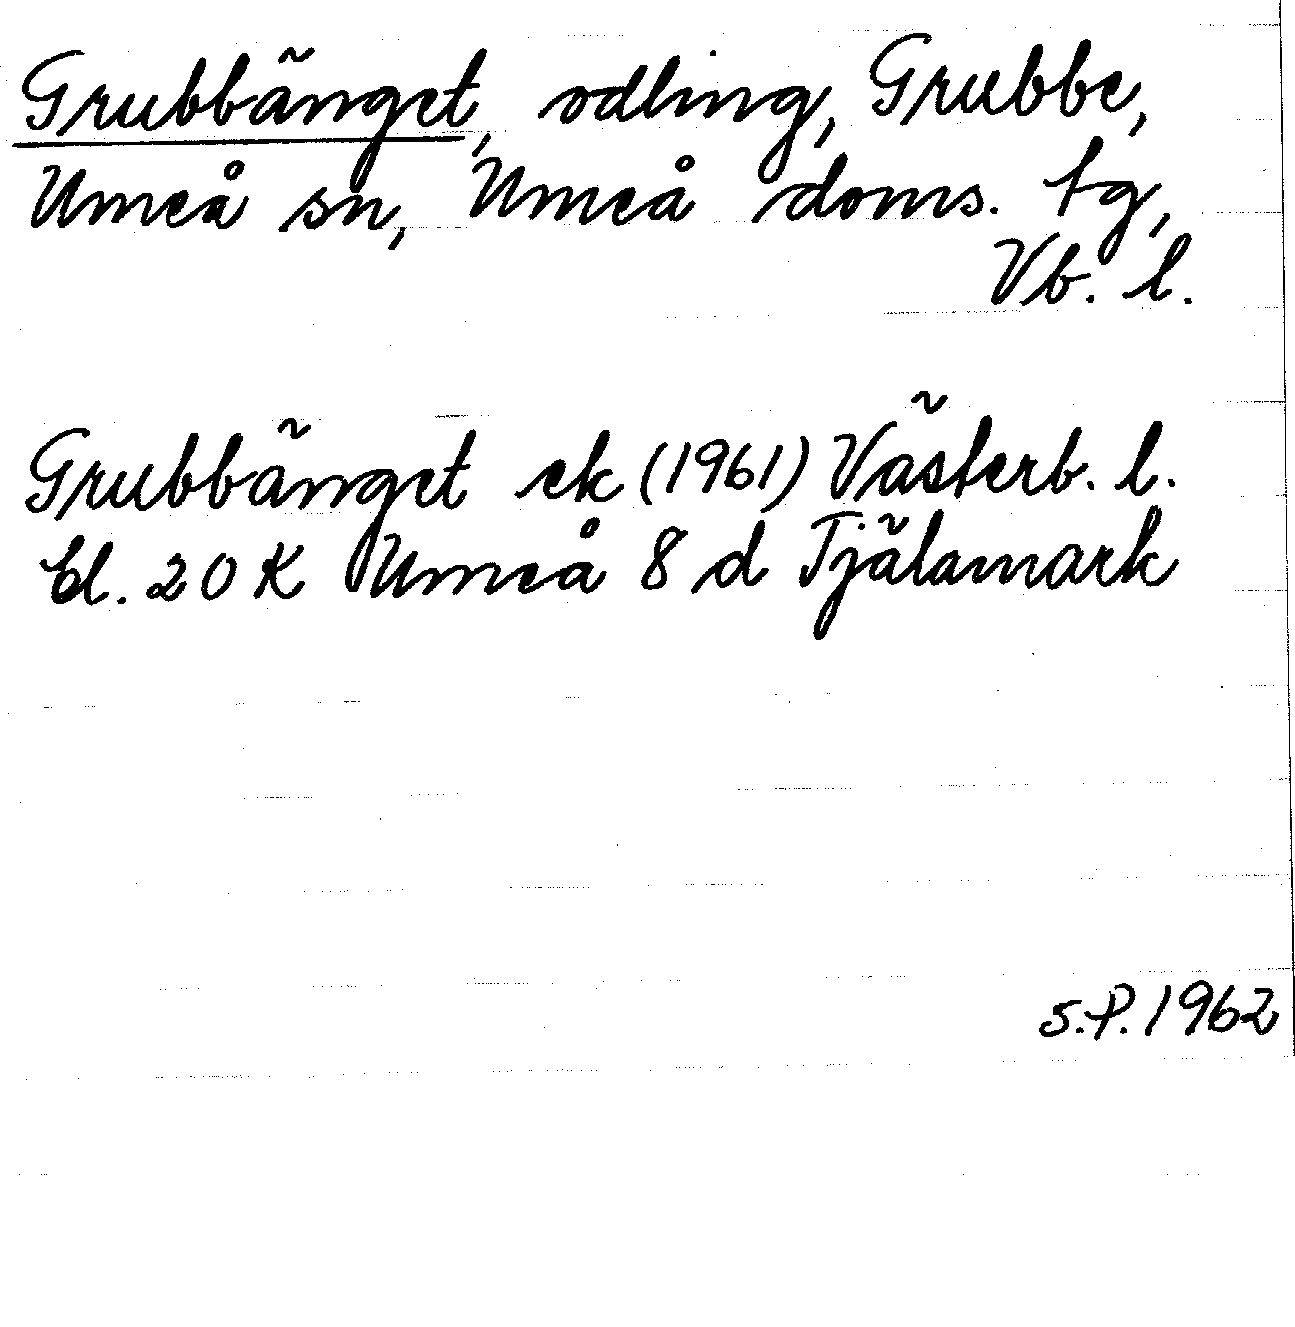 Grubbänget, odling, Grubbe,
Umeå sn, Umeå doms. tg,
Vb. l.
Grubbänget ek (1961) Västerb. l.
bl. 20 K Umeå 8 d Tjälamark
S.P. 1962